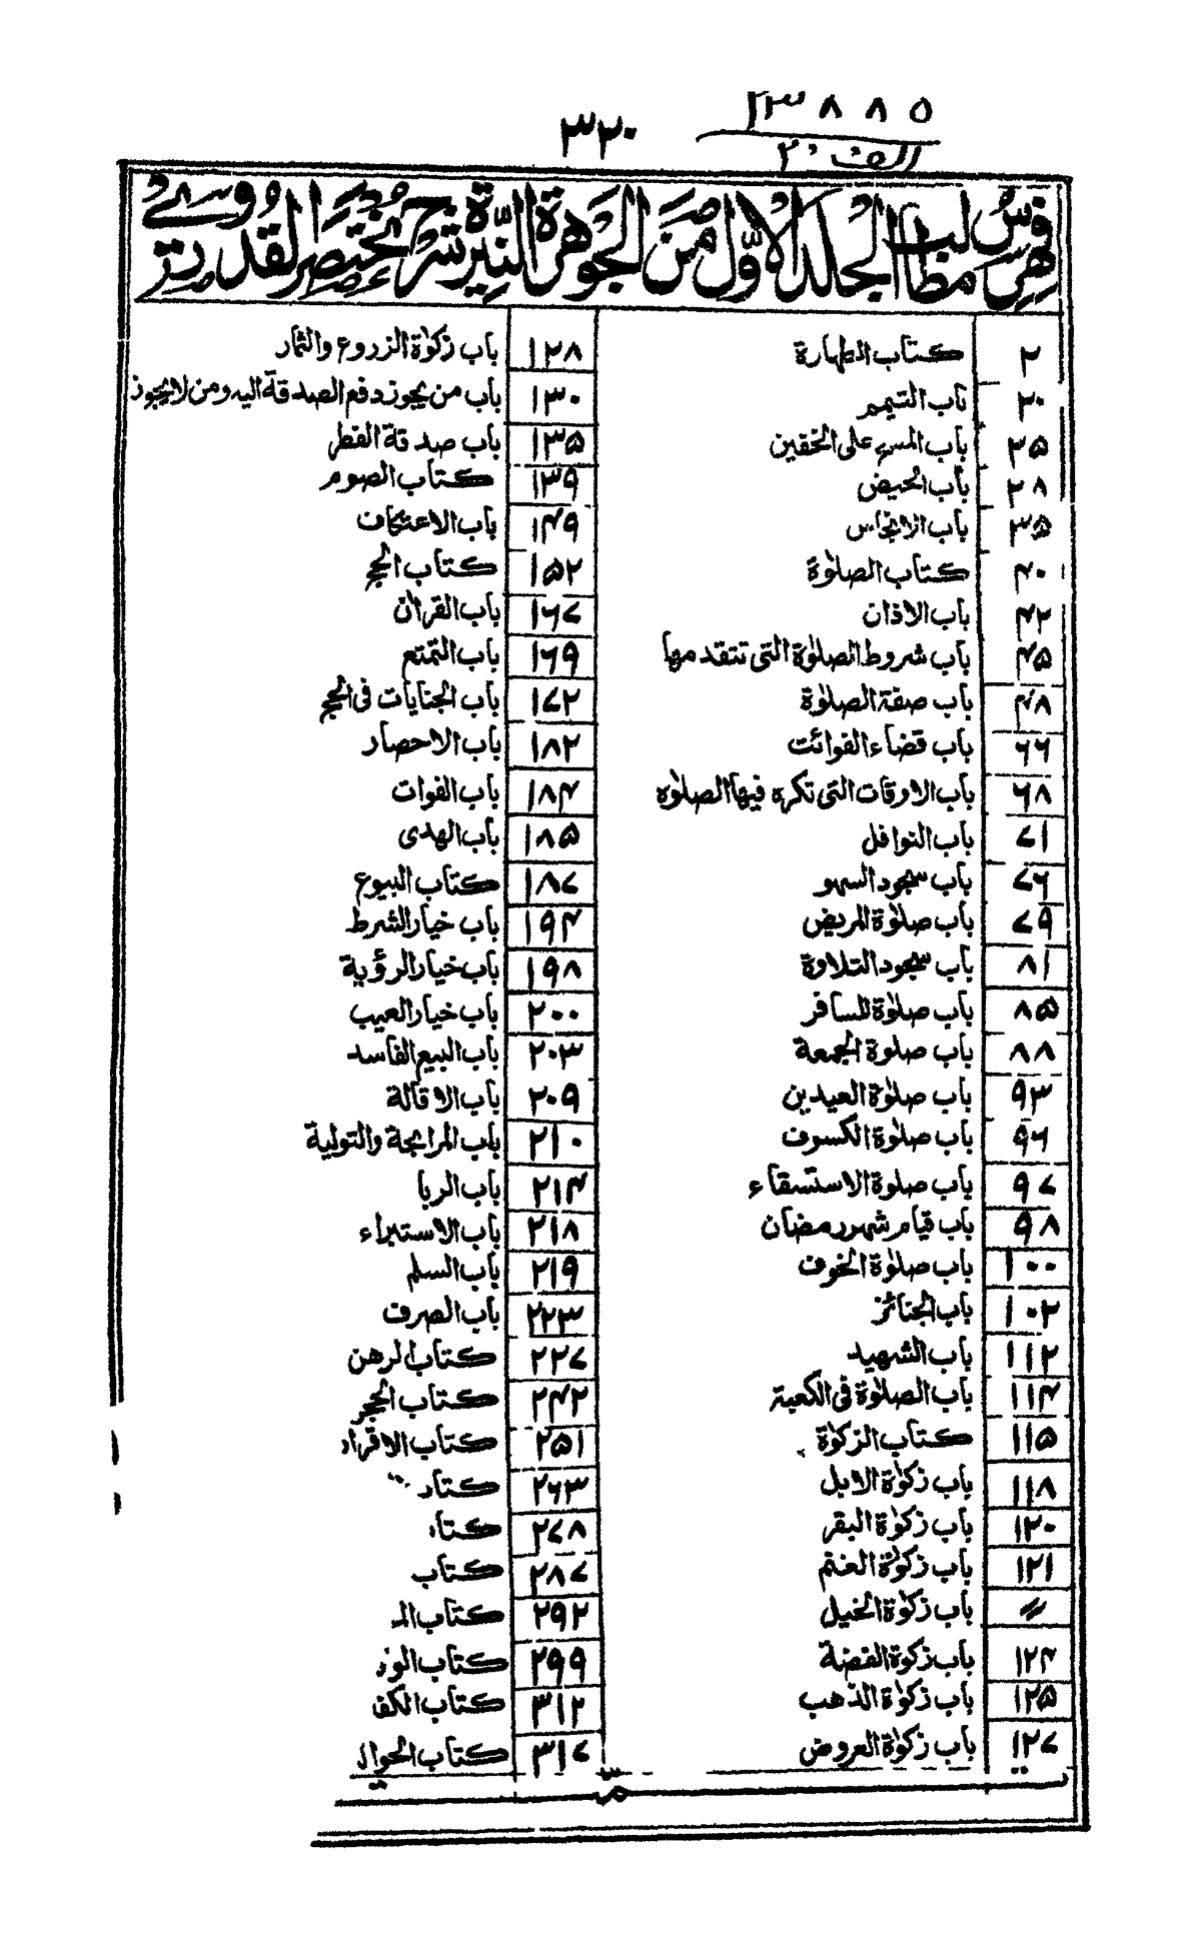 ٢٣٨٨٥
الف ٢٠
٣٢٠
فهرس مطالب الجلد الاول من الجوهرة النيرة شرح مختصر القدوري
٢ كتاب الطهارة
٢٠ باب التيمم
٢٥ باب المسح على الخفين
٢٨ باب الحيض
٣٥ باب الانجاس
٤٠ كتاب الصلوة
٤٢ باب الاذان
٤٥ باب شروط الصلوة التى تتقدمها
٤٨ باب صفة الصلوة
٦٦ باب قضاء الفوائت
٦٨ باب الاوقات التى تكره فيها الصلوة
٧١ باب النوافل
٧٦ باب سجود السهو
٧٩ باب صلوة المريض
٨١ باب سجود التلاوة
٨٥ باب صلوة المسافر
٨٨ باب صلوة الجمعة
٩٣ باب صلوة العيدين
٩٦ باب صلوة الكسوف
٩٧ باب صلوة الاستسقاء
٩٨ باب قيام شهر رمضان
١٠٠ باب صلوة الخوف
١٠٢ باب الجنائز
١١٢ باب الشهيد
١١٤ باب الصلوة فى الكعبة
١١٥ كتاب الزكوة
١١٨ باب زكوة الابل
١٢٠ باب زكوة البقر
١٢١ باب زكوة الغنم
〃 باب زكوة الخيل
١٢٤ باب زكوة الفضة
١٢٥ باب زكوة الذهب
١٢٧ باب زكوة العروض
١٢٨ باب زكوة الزروع والثمار
١٣٠ باب من يجوز دفع الصدقة اليه ومن لا يجوز
١٣٥ باب صدقة الفطر
١٣٩ كتاب الصوم
١٤٩ باب الاعتكاف
١٥٢ كتاب الحج
١٦٧ باب القران
١٦٩ باب التمتع
١٧٢ باب الجنايات فى الحج
١٨٢ باب الاحصار
١٨٤ باب الفوات
١٨٥ باب الهدى
١٨٧ كتاب البيوع
١٩٤ باب خيار الشرط
١٩٨ باب خيار الرؤية
٢٠٠ باب خيار العيب
٢٠٣ باب البيع الفاسد
٢٠٩ باب الاقالة
٢١٠ باب المرابحة والتولية
٢١٤ باب الربا
٢١٨ باب الاستبراء
٢١٩ باب السلم
٢٢٣ باب الصرف
٢٢٧ كتاب الرهن
٢٤٢ كتاب الحجر
٢٥١ كتاب الاقرار
٢٦٣ كتاب
٢٧٨ كتاب
٢٨٧ كتاب
٢٩٢ كتاب
٢٩٩ كتاب
٣١٢ كتاب الكف
٣١٧ كتاب الحوال